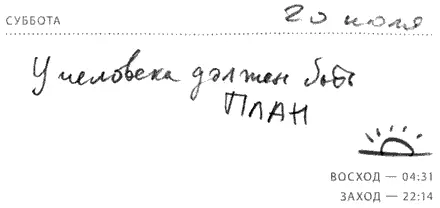 СУББОТА 20 июля
У человека должен быть
ПЛАН
ВОСХОД — 04:31
ЗАХОД — 22:14